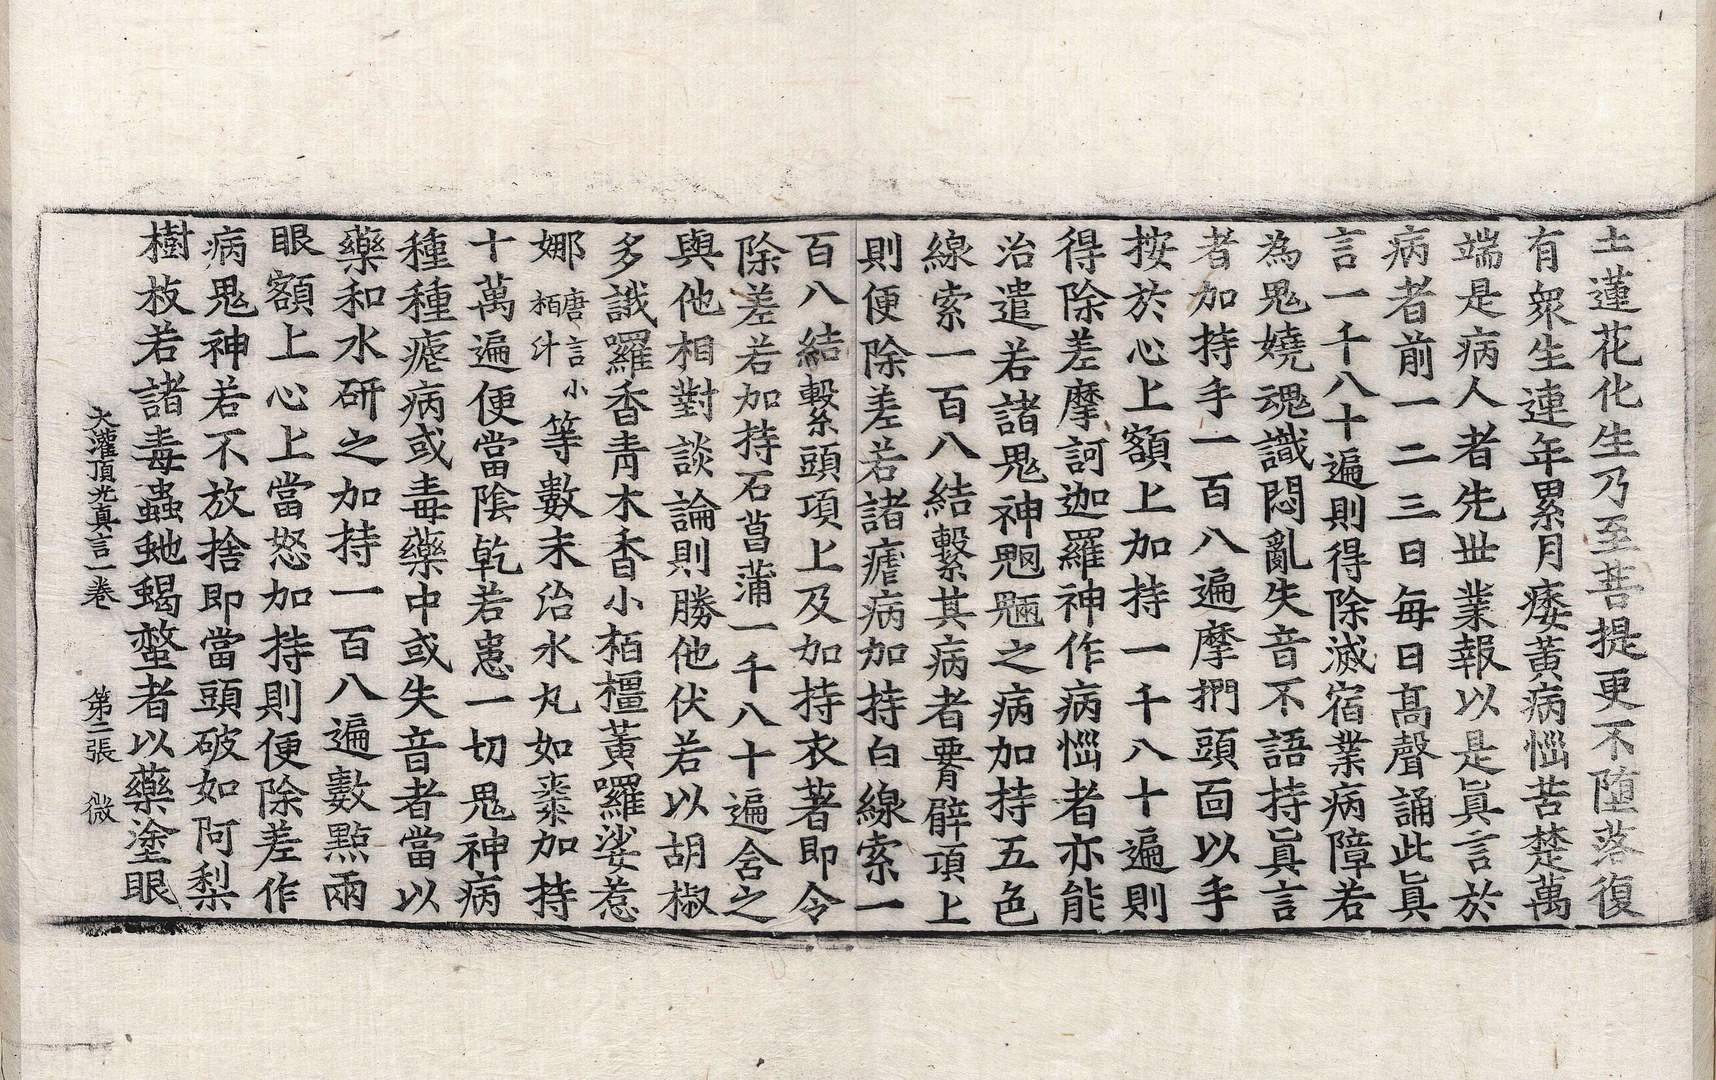 土蓮花化生乃至菩提更不墮落復
有衆生連年累月痿黃病惱苦楚萬
端是病人者先世業報以是眞言於
病者前一二三日每日高聲誦此眞
言一千八十遍則得除滅宿業病障若
為鬼嬈魂識悶亂失音不語持眞言
者加持手一百八遍摩捫頭面以手
按於心上額上加持一千八十遍則
得除差摩訶迦羅神作病惱者亦能
治遣若諸鬼神魍魎之病加持五色
線索一百八結繫其病者要臂項上
則便除差若諸瘧病加持白線索一
百八結繫頭項上及加持衣著即令
除差若加持石菖蒲一千八十遍含之
與他相對談論則勝他伏若以胡椒
多誐囉香青木香小栢橿黃囉娑惹
娜唐言小栢汁等數末治水丸如棗加持
十萬遍便當陰乾若患一切鬼神病
種種瘧病或毒藥中或失音者當以
藥和水研之加持一百八遍數點兩
眼額上心上當怒加持則便除差作
病鬼神若不放捨即當頭破如阿梨
樹枝若諸毒蟲虵蝎螫者以藥塗眼
大灌頂光真言一卷 第二張 微